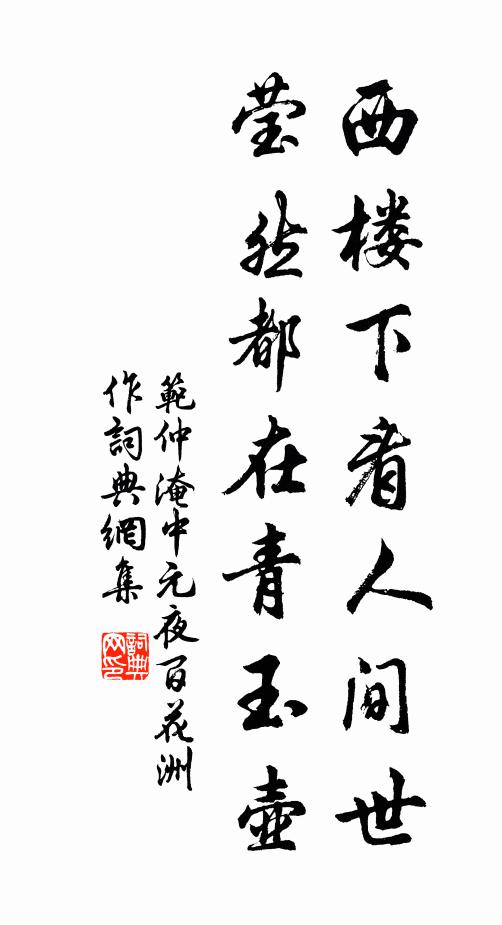 西楼下看人间世
莹然都在青玉壶
範仲淹中元夜百花洲
作詞典網集
詞典
网印